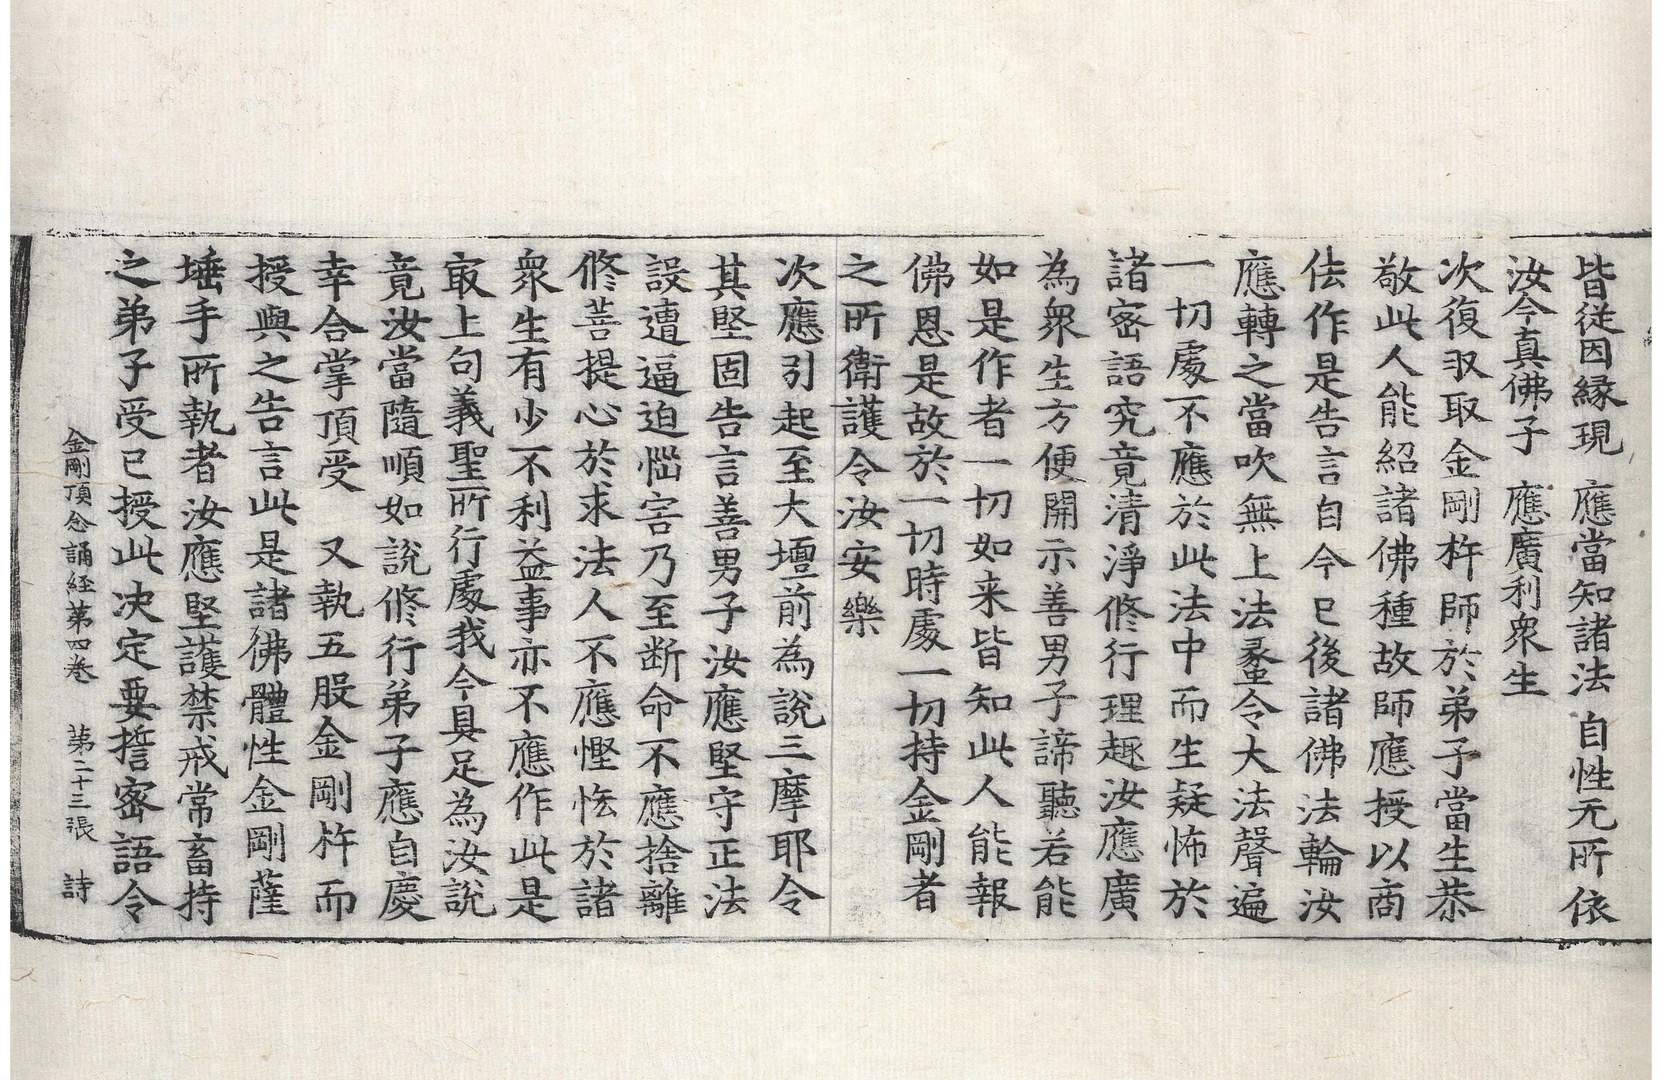 皆從因縁現　應當知諸法　自性无所依
汝今真佛子　應廣利衆生
次復㕞取金剛杵師於弟子當生恭
敬此人能紹諸佛種故師應授以商
佉作是告言自今已後諸佛法輪汝
應轉之當吹無上法蠡令大法聲遍
一切處不應於此法中而生疑怖於
諸密語究竟清淨修行理趣汝應廣
為衆生方便開示善男子諦聽若能
如是作者一切如来皆知此人能報
佛恩是故於一切時處一切持金剛者
之所衛護令汝安樂
次應引起至大壇前為説三摩耶令
其堅固告言善男子汝應堅守正法
設遭逼迫惱害乃至断命不應捨離
修菩提心於求法人不應慳悋於諸
衆生有少不利益事亦不應作此是
㝡上句義聖所行處我今具足為汝説
竟汝當隨順如説修行弟子應自慶
幸合掌頂受　又執五股金剛杵而
授與之告言此是諸佛體性金剛薩
埵手所執者汝應堅護禁戒常畜持
之弟子受已授此决定要誓密語令
金剛頂念誦経第四卷　第二十三張　詩